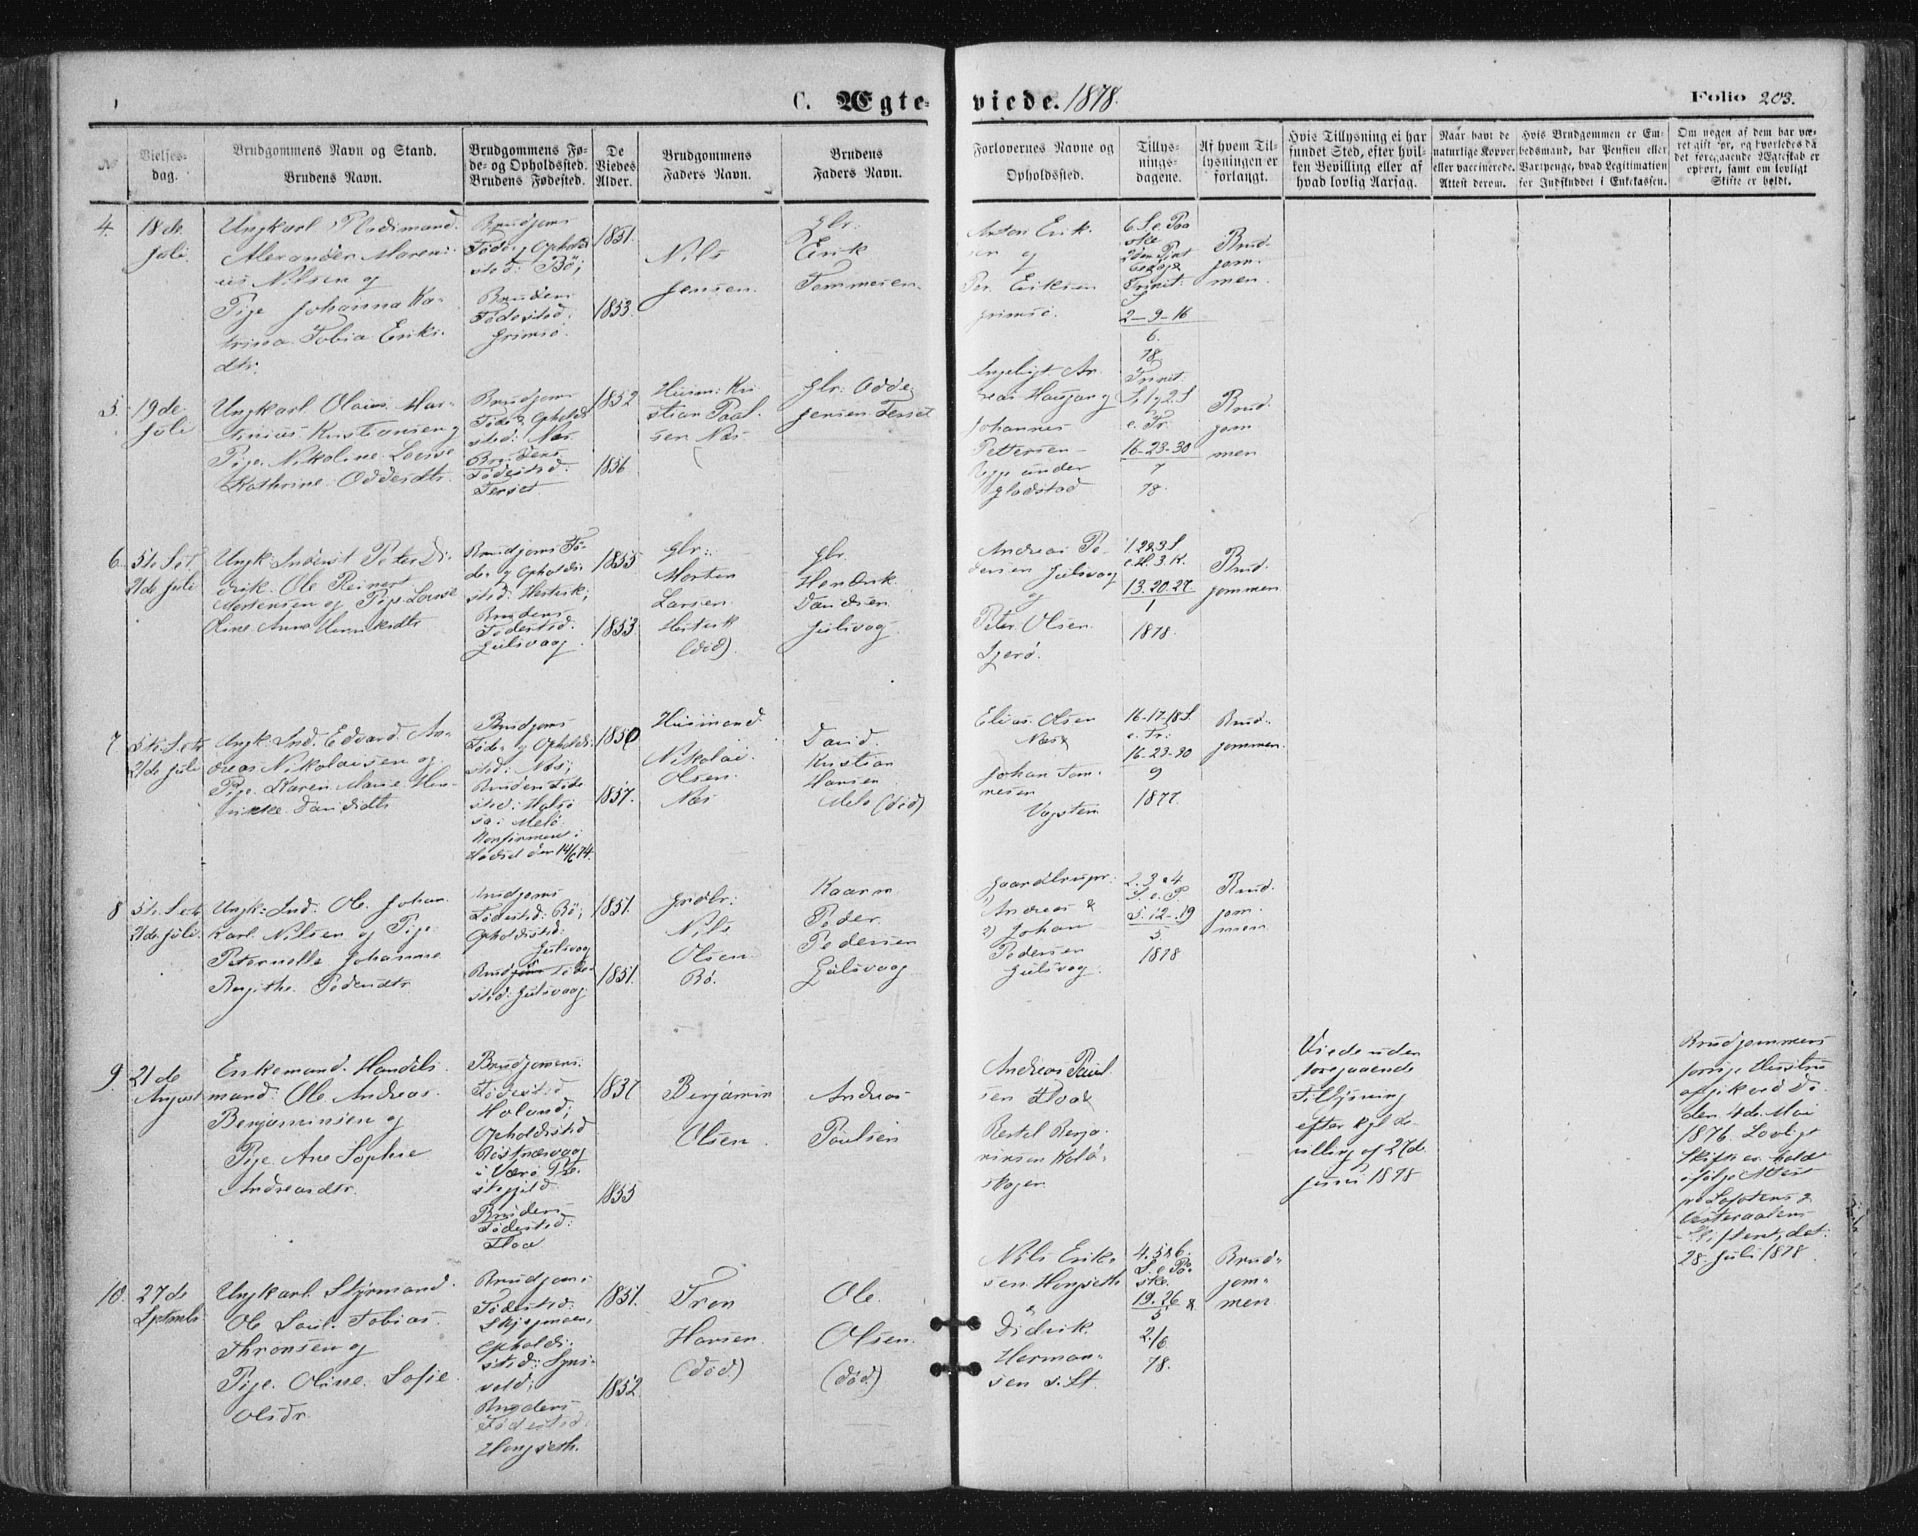 C. Ægte-
viede. 1878.
Folio 203.
No
Vielses-
dag.
Brudgommens Navn og Stand.
Brudens Navn.
Brudgommens Fø-
de- og Opholdssted.
Brudens Fødested.
De
Viedes
Alder.
Brudgommens
Faders Navn.
Brudens
Faders Navn.
Forlovernes Navne og
Opholdssted.
Tillys-
nings-
dagene.
Af hvem Til-
lysningen er
forlangt.
Hvis Tillysning ei har
fundet Sted, efter hvil-
ken Bevilling eller af
hvad lovlig Aarsag.
Naar havt de
naturlige Kopper
eller vaccinerede.
Attest derom.
Hvis Brudgommen er Em-
bedsmand, har Pension eller
Vartpenge, hvad Legitimation
for Indskuddet i Enkekassen.
Om nogen af dem har væ-
ret gift før, og hvorledes da
det foregaaende Ægteskab er
ophørt, samt om lovligt
Skifte er holdt.
4. 18de
Juli.
Ungkarl
Alexander
Nilsen og
Pige Johanna Ka-
trina Tobia Eriks-
dtr.
Brudgoms
Føde- og Opholds-
sted: Bö;
Brudens
Fødested:
Grimsö.
1851
1853.
Nils
Jensen
Gbr.
Erik
Tommesen
Anton Erik-
sen og
Per Eriksen
Grimsö.
6. S. e. Paa-
ske
Trinit.
2-9-16
6.
78
Brud-
gom-
men.
5. 19de
Juli
Ungkarl Olaus Mar-
tinius Kristiansen og
Pige Nikoline Lovise
Kathrine Oddesdtr.
Brudgoms
Føde & Opholds-
sted: Næs
Brudens
Fødested:
Terset.
1852
1856
Husm: Kri-
stian Paal-
sen Næs
Gbr: Odde
Jensen Terset
Johannes
Pettersen
under
Gladstad
Trinit.
e. Tr.
16-23-30
7
78.
Brud-
gom
men
6. 5te Søt.
21de Juli
Ungk. Inderst Peter Di-
drik Ole Reinert
Mortensen og Pige Lovise
Oline Anna Henriksdtr.
Brudgoms Fø-
de- og Opholds-
sted: Hestvik;
Brudens
Fødested:
Julsvaag.
1855
1853
Gbr:
Morten
Larsen
Hestvik
(död).
Gbr.
Hendrik
Davidsen
Julsvaag.
Andreas Pe-
dersen Julsvaag
og
Peter Olsen
1 2 & 3 S.
e. H. 3 K.
13. 20. 27.
1
1878.
Brud-
gommen
7 5te S. e. tr.
21de Juli
Ungk. Ind. Edvard An-
dreas Nikolaisen og
Pige Karen Marie Hen-
rikke Davidsdtr.
Brudgoms
Føde- og Opholds-
sted: Næs;
Brudens Føde-
sted:
i Melö.
Konfirmeret i
den 14/6 74.
1850
1857.
Husmand
Nikolai
Olsen
Næs
David
Kristian
Hansen
Melö (död)
Elias Olsen
Næs &
Johan Tom-
mesen
16-17-18 S.
e. Tr:
16-23-30
9
1877.
Brud-
gommen.
8 5te S. e. tr.
21de Juli
Ungk: Ind. Ole Johan
Karl Nilsen og Pige
Peternelle Johanna
Birgithe Pedersdtr.
Brudgoms
Fødested: Bö;
Opholdssted:
Julsvaag
Brudens Føde-
sted: Julsvaag
1851.
1851.
Nils
Olsen
Bö.
Kaarm.
Peder
Pedersen
Julsvaag
Gaardbrugr:
1) Andreas &
2) Johan
Pedersen
Julsvaag.
2. 3. & 4
S. e. P
5. 12-.19
5
1878
Brud-
gom-
men
9 21de
August
Enkemand. Handels-
mand: Ole Andreas
Benjaminsen og
Pige Ane Sophie
Andreasdtr.
Brudgomens
Fødested
Holand;
Opholdssted
Röstnæsvaag
i Værö Pre-
stegjeld.
Brudens
Fødested:
Floa
1837
1855
Benjamin
Olsen.
Andreas
Paulsen
Andreas Paul-
sen Floa &
Benja-
minsen
Viede uden
foregaaende
Tillysning
efter kgl. Be-
villing af 27de
Juni 1878
Brudgommens
forrige Hustru
afgik ved Dö-
den 4de Mai
1876. Lovligt
Skifte er holdt
ifölge Attest
paa Lofotens &
Vesteraalens
28. Juli 1878.
10. 27de
Septembr.
Ungkarl Styrmand
Ole Tobias
Thronsen og
Pige Oline Sofie
Olsdr.
Brudgoms
Fødested:
Opholds-
sted:
Brudens
Fødested:
Hongseth.
1851.
1852.
Tron
Hansen
(död)
Ole
Olsen.
(död.)
Nils Erik-
sen Hongseth
&
Didrik
Herman-
sen s. St.
4. 5 & 6.
S. e. Paa-
ske.
19. 26 &
5
2./6
78.
Brud-
gom-
men.